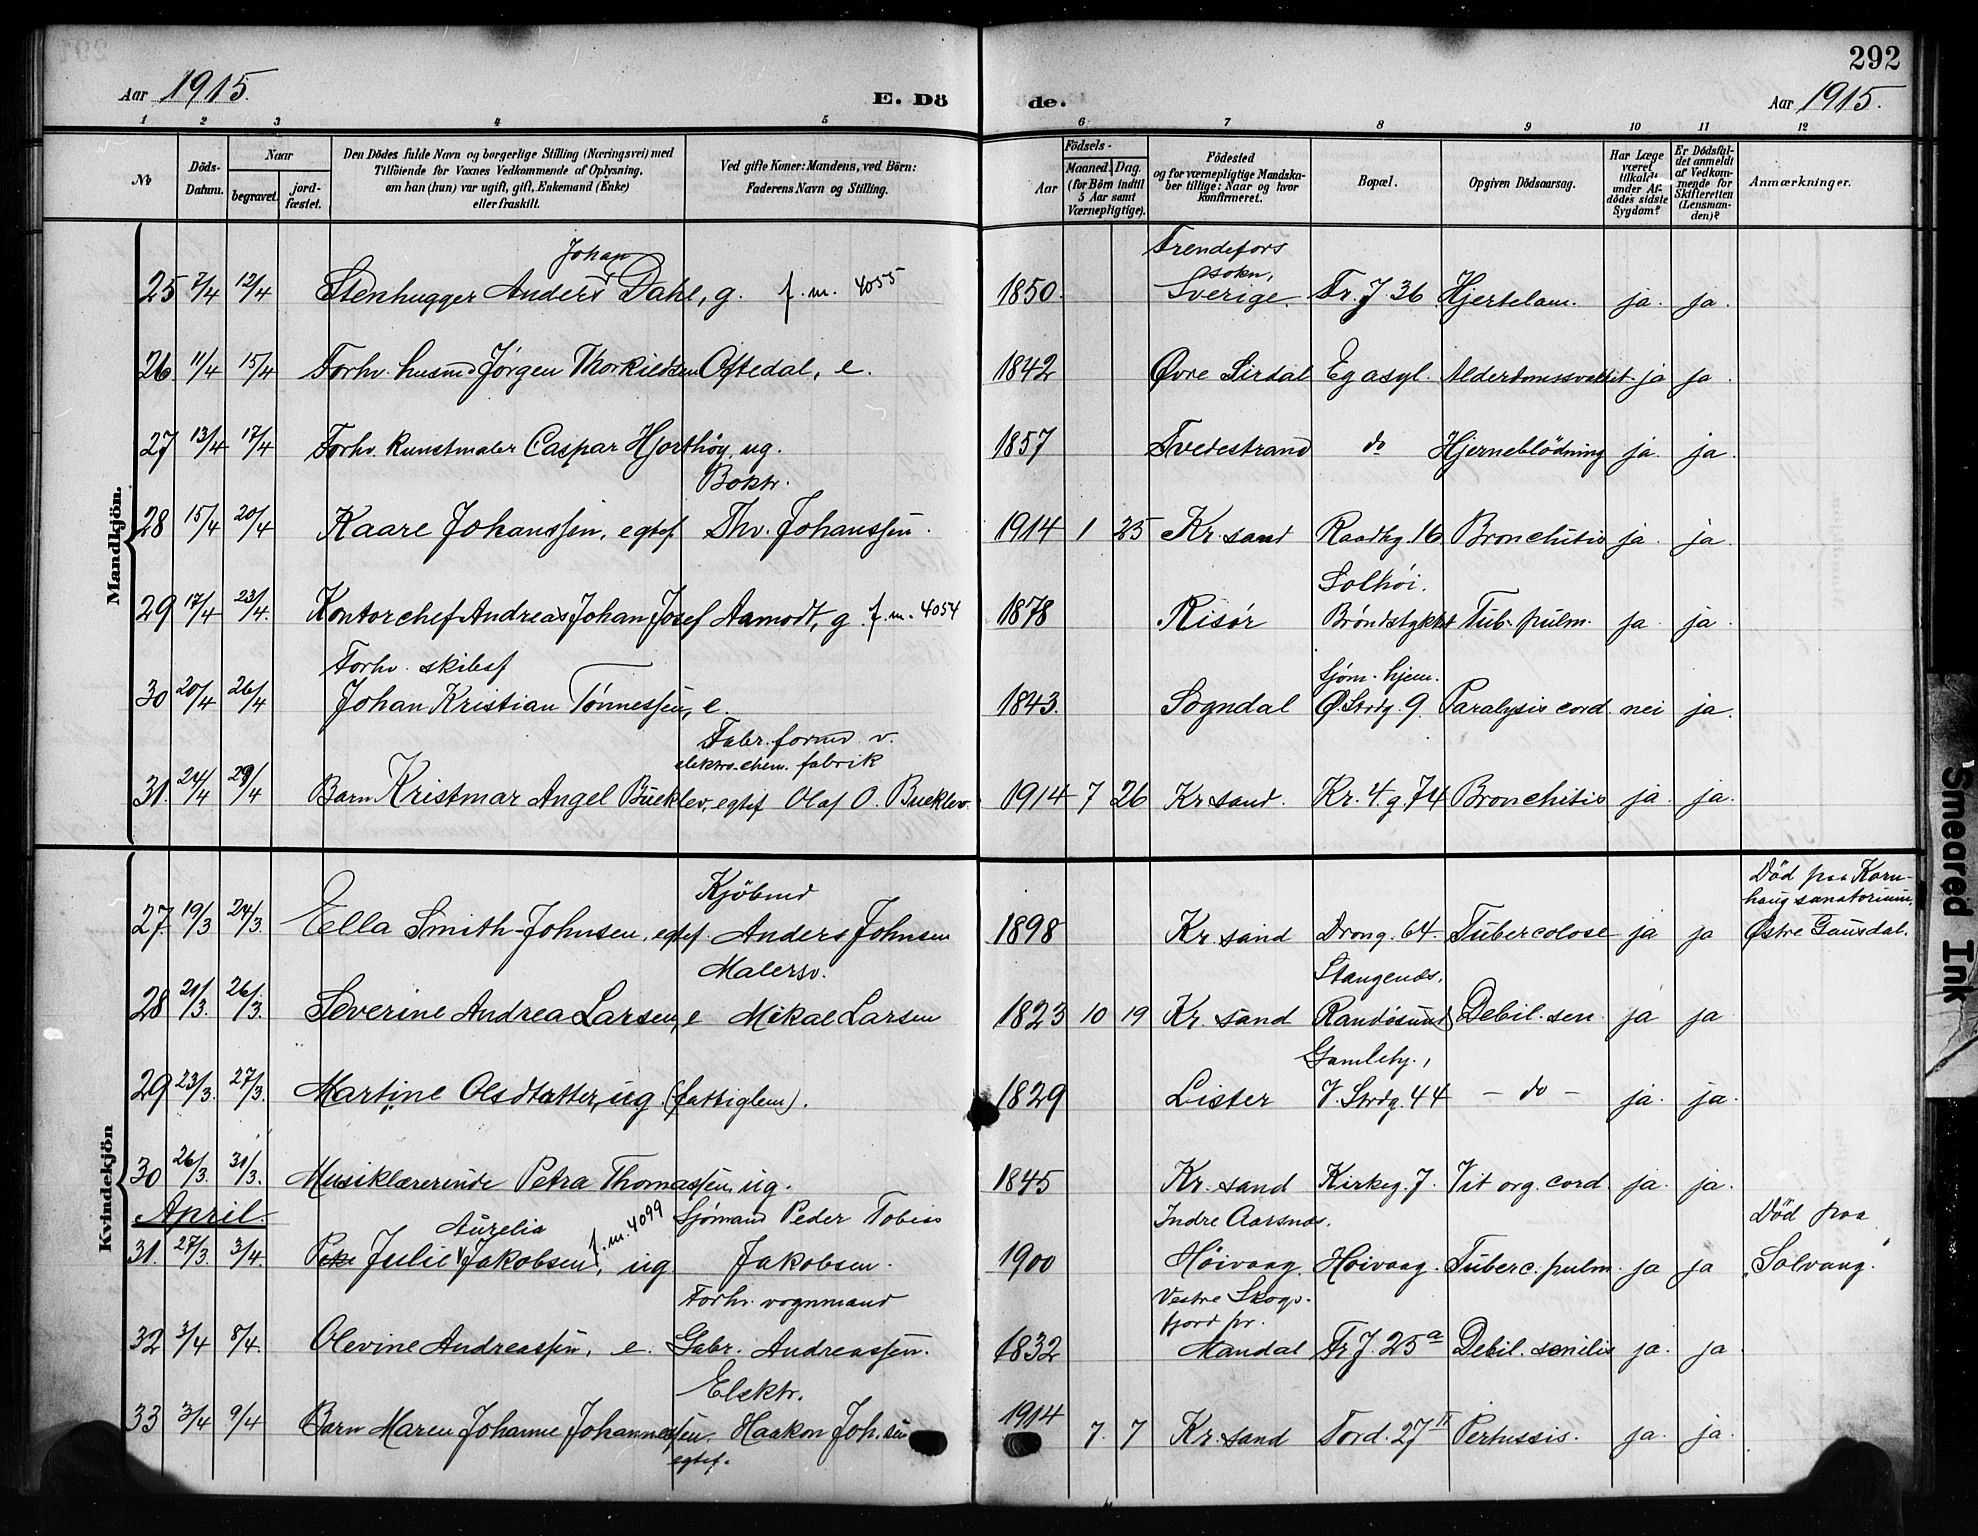 292
Aar 1915.
E. Dö
de.
Aar 1915.
1 2 3 4 5 6 7 8 9 10 11 12
Nr
Döds-Datum.
Naar
begravet.
jord-fæstet.
Den Dödes fulde Navn og borgerlige Stilling (Næringsvei) med
Tilföiende for Voxnes Vedkommende af Oplysning,
om han (hun) var ugift, gift, Enkemand (Enke)
eller fraskilt.
Ved gifte Koner: Mandens, ved Börn:
Faderens Navn og Stilling.
Födsels-
Aar
Maaned.
Dag.
(for Börn indtil
5 Aar samt
Værnepligtige).
Födested
og for værnepligtige Mandska-
ber tillige: Naar og hvor
konfirmeret.
Bopæl.
Opgiven Dödsaarsag.
Har Læge
været
tilkaldt
under Af-
dödes sidste
Sygdom?
Er Dödsfal-
det anmeldt
af Vedkom-
mende for
Skifteretten
(Lensman-
den)?
Anmærkninger.
Mandkjön.
Johan
Trendefors
sokn,
25 7/4 12/4 Stenhugger Anders Dahl, g. f. m. 4055 1850. Sverige Tr. J 36 Hjertelam. ja. ja.
26 11/4 15/4 Forhv. husmd Jørgen Thorkildsen Oftedal, e. 1842 Øvre Sirdal Eg asyl. Alderdomssvakhet ja ja.
27 13/4 17/4 Forhv. kunstmaler Caspar Hjorthöy, ug. 1857 Tvedestrand do Hjerneblödning ja. ja.
Boktr.
28 15/4 20/4 Kaare Johanssen, egtef. Thv. Johanssen. 1914 1 25 Kr. sand Raadhg. 16 Bronchitis ja. ja.
Solhöi.
29 17/4 23/4. Kontorchef Andreas Johan Josef Aamodt, g. f. m. 4054 1878 Risør Bröndstykket Tub. pulm. ja. ja.
Forhv. skibsf
Sjöm. hjem.
30 20/4 26/4 Johan Kristian Tönnessen, e. 1843. Sogndal Ø. Strdg. 9. Paralysis cord. nei ja.
Fabr. formd v.
elektro-chem. fabrik
31. 24/4 29/4 Barn Kristmar Angel Bueklev, egtef Olaf O. Bueklev. 1914 7 26 Kr sand. Kr. 4. g. 74 Bronchitis ja. ja.
Kvindekjön
Kjöbmd
Död paa Korn-
haug sanatorium,
27. 19/3 24/3. Ella Smith-Johnsen, egtef. Anders Johnsen 1898 Kr. sand Dron g. 64. Tubercolose ja ja Østre Gausdal.
Malersv.
Stangenes.
28 21/3. 26/3. Severine Andrea Larsen, e Mikael Larsen 1823 10 19 Kr. sand Randösund Debil. sen. ja ja
Gamlehj.,
29 23/3. 27/3. Martine Olsdatter, ug. (fattiglem). 1829 Lister V. Strdg. 44 - do - ja. ja.
30 26/3. 31/3. Musiklærerinde Petra Thomassen, ug. 1845 Kr. sand Kirkeg. 7. Vit. org. cord. ja. ja.
April.
Aurelia
f. m. 4099
Sjömand Peder Tobias
Indre Aarsnes.
Död paa
31. 27/3. 3/4. Julie Jakobsen, ug Jakobsen. 1900 Höivaag. Höivaag. Tuberc. pulm. ja ja "Solvang."
Forhv. vognmand
Vestre Skogs-
fjord pr.
32 3/4 8/4. Olevine Andreassen, e. Gabr. Andreassen. 1832 Mandal Tr J. 25 a Debil. senilis ja. ja
Elektr.
33 3/4 9/4 Barn Maren Johanne Johannessen. Haakon Joh.sen 1914 7. 7 Kr. sand Tord. 27 II Pertussis. ja. ja.
egtef.
Smeared Ink